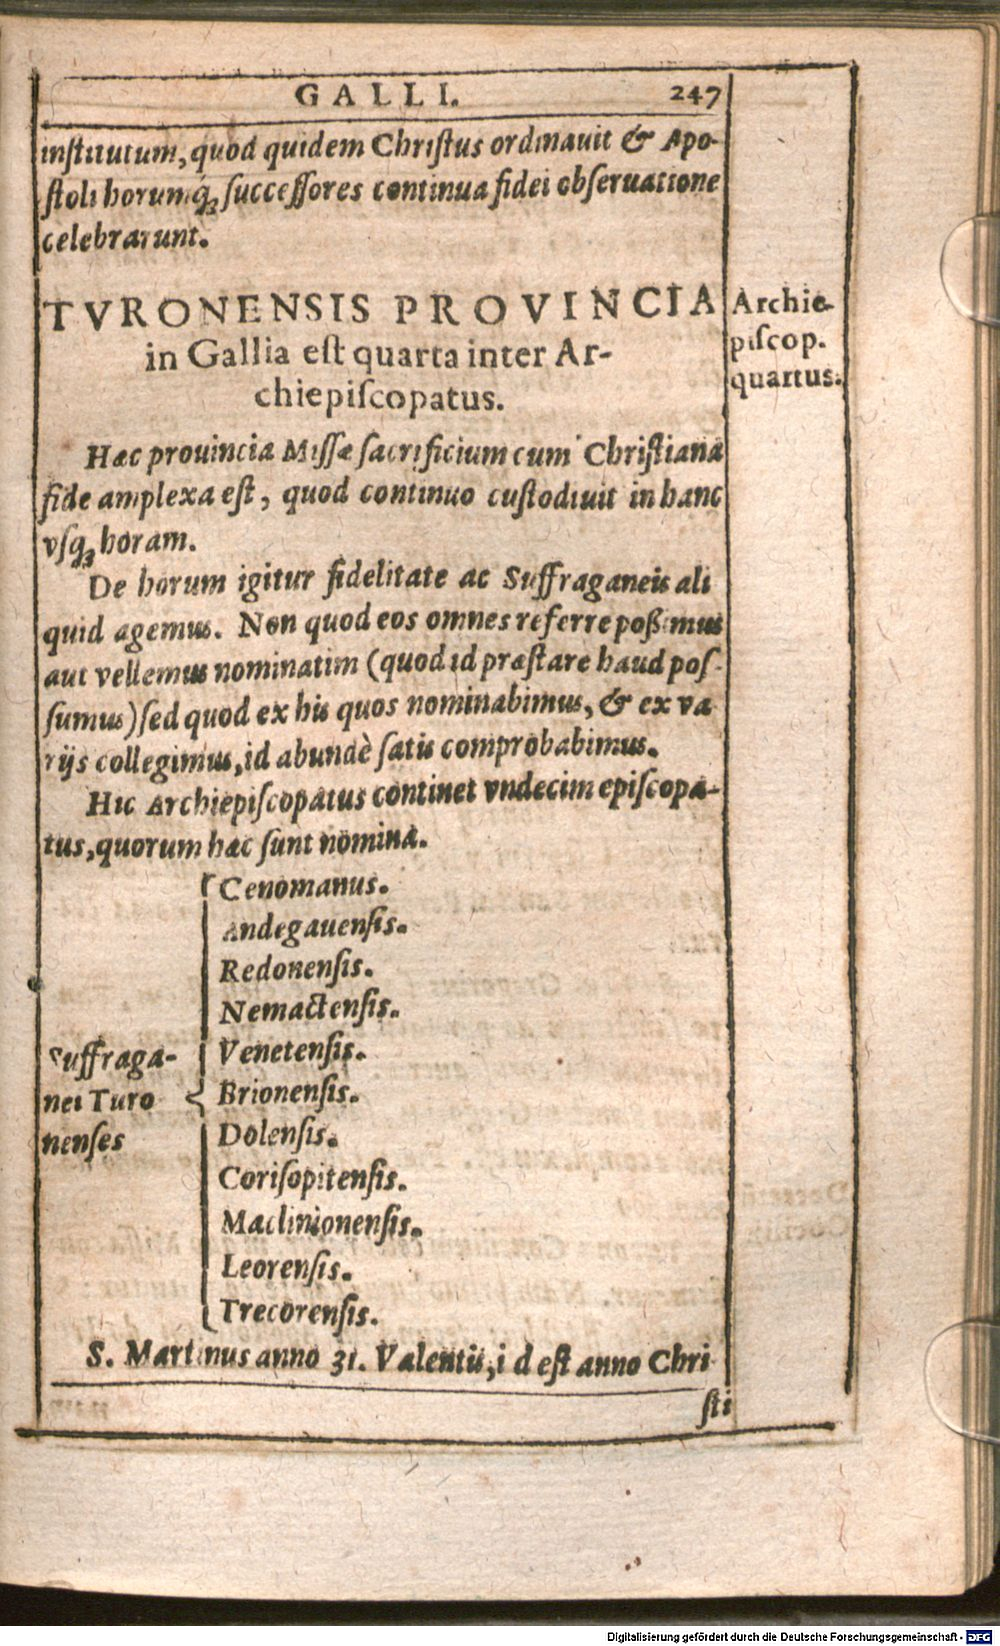 GALLI. 247
institutum, quod quidem Christus ordinauit & Apo-
stoli horumq́ꝫ successores continua fidei obseruatione
celebrarunt.
TVRONENSIS PROVINCIA
in Gallia est quarta inter Ar-
chiepiscopatus.
Archie-
piscop.
quartus.
Hæc prouincia Missæ sacrificium cum Christiana
fide amplexa est, quod continuo custodiuit in hanc
vsqꝫ horam.
De horum igitur fidelitate ac Suffraganeis ali
quid agemus. Non quod eos omnes referre poßimus
aut vellemus nominatim (quod id præstare haud pos-
sumus) sed quod ex his quos nominabimus, & ex va
rijs collegimus, id abundè satis comprobabimus.
Hic Archiepiscopatus continet vndecim episcopa-
tus, quorum hæc sunt nomina.
Suffraga-
nei Turo
nenses
Cenomanus.
Andegauensis.
Redonensis.
Nemactensis.
Venetensis.
Brionensis.
Dolensis.
Corisopitensis.
Maclinionensis.
Leorensis.
Trecorensis.
S. Martinus anno 31. Valentis, i d est anno Chri
sti
Digitalisierung gefördert durch die Deutsche Forschungsgemeinschaft - DFG